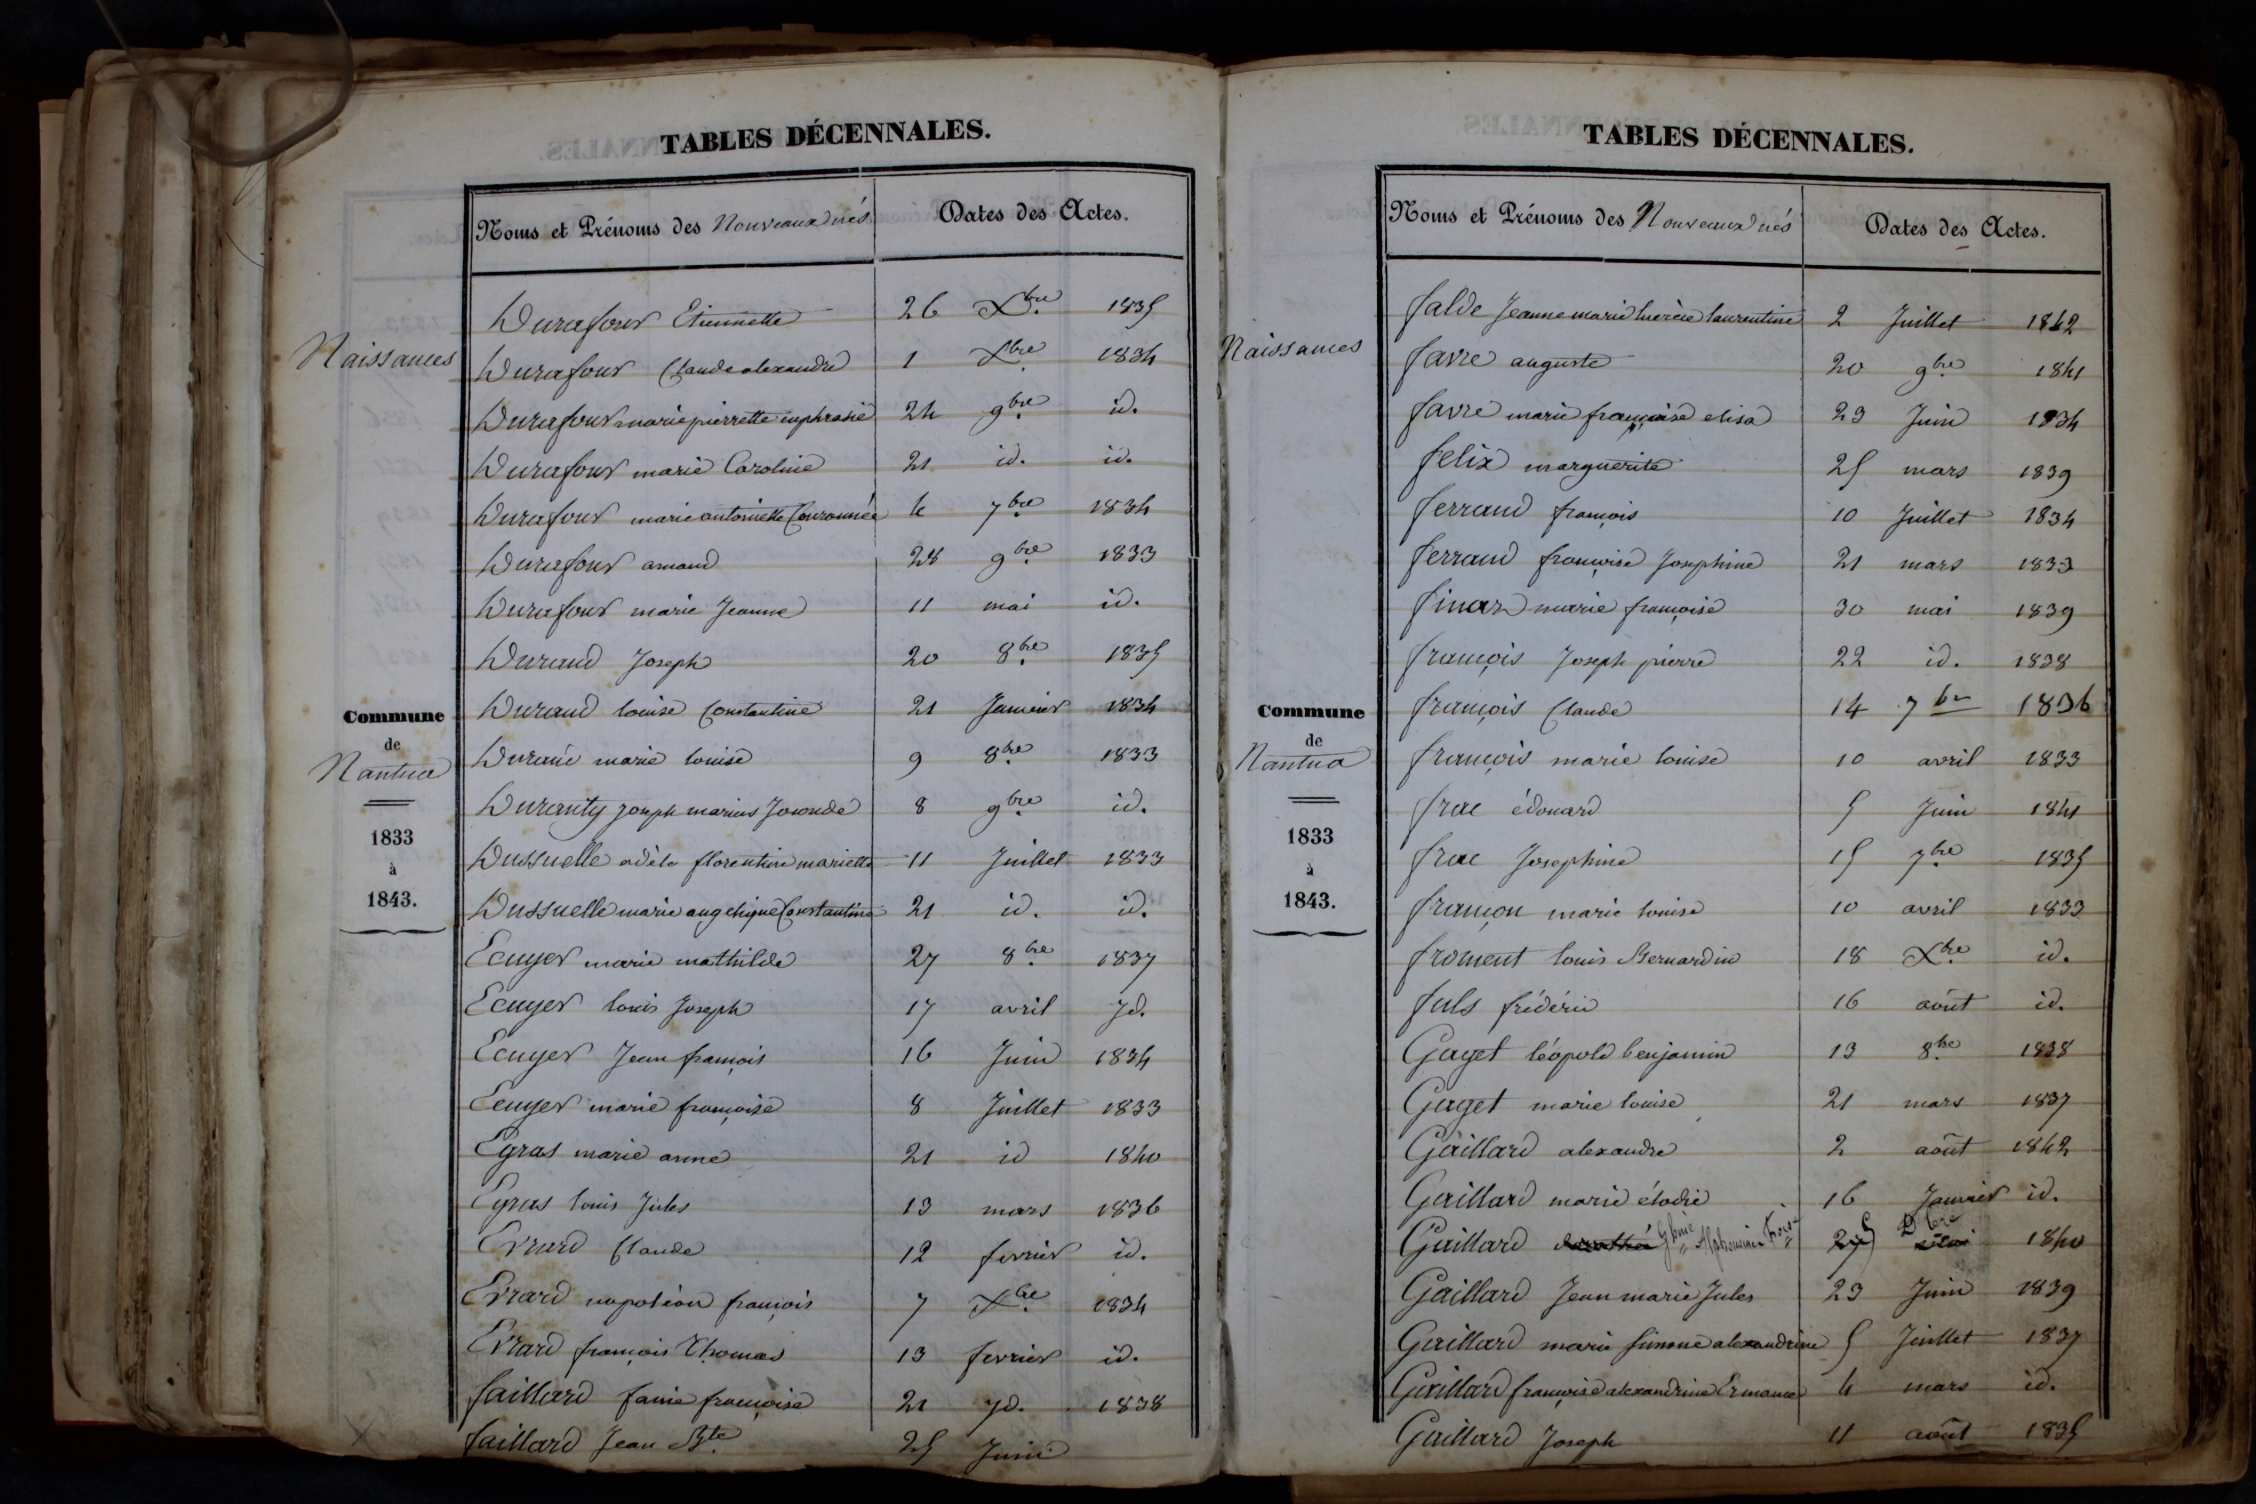 TABLES DÉCENNALES.
Noms et Prénoms des Nouveaux nés
Dates des Actes.
Naissances
Commune
de
Nantua
1833
à
1843.
Durafour Etiennette 26 Xbre 1835
Durafour Claude alexandre 1 Xbre 1834
Durafour marie pierrette euphrasie 24 9bre id.
Durafour marie Caroline 21 id. id.
Durafour marie antoinette Couronnée 4 7bre 1834
Durafour amand 28 9bre 1833
Durafour marie Jeanne 11 mai id.
Durand Joseph 20 8bre 1835
Durand louise Constantine 21 Janvier 1834
Durand marie louise 9 8bre 1833
Duranty joseph marius Joconde 8 9bre id.
Dussuelle adèle florentine mariette 11 Juillet 1833
Dussuelle marie angelique Constantine 21 id. id.
Ecuyer marie mathilde 27 8bre 1837
Ecuyer louis Joseph 17 avril Jd.
Ecuyer Jean françois 16 Juin 1834
Ecuyer marie françoise 8 Juillet 1833
Egras marie anne 21 id 1840
Egras louis Jules 13 mars 1836
Evrard Claude 12 fevrier id.
Evrard napoléon françois 7 Xbre 1834
Evrard françois Thomas 13 fevrier id.
faillard fanie françoise 21 Jd. 1838
faillard Jean Bte 25 Juin
TABLES DÉCENNALES.
Noms et Prénoms des Nouveaux nés
Dates des Actes.
Naissances
Commune
de
Nantua
1833
à
1843.
falde Jeanne marie thérèse laurentine 2 Juillet 1842
favre auguste 20 9bre 1841
favre marie françoise elisa 23 Juin 1834
felix marguerite 25 mars 1839
ferrand françois 10 Juillet 1834
ferrand françoise Josephine 21 mars 1833
finaz marie françoise 30 mai 1839
françois Joseph pierre 22 id. 1838
françois Claude 14 7br 1836
françois marie louise 10 avril 1833
frac édouard 5 Juin 1841
frac Josephine 15 7bre 1835
françon marie louise 10 avril 1833
froment louis Bernardin 18 Xbre id.
fuls frédéric 16 août id.
Gaget léopold benjamin 13 8bre 1838
Gaget marie louise 21 mars 1837
Gaillard alexandre 2 août 1842
Gaillard marie élodie 16 Janvier id.
Gaillard Alphonsine Fois 5 Dbre 1840
Gaillard Jean marie Jules 23 Juin 1839
Gaillard marie simone alexandrine 5 Juillet 1837
Gaillard françoise alexandrine Ermance 4 mars id.
Gaillard Joseph 11 août 1835